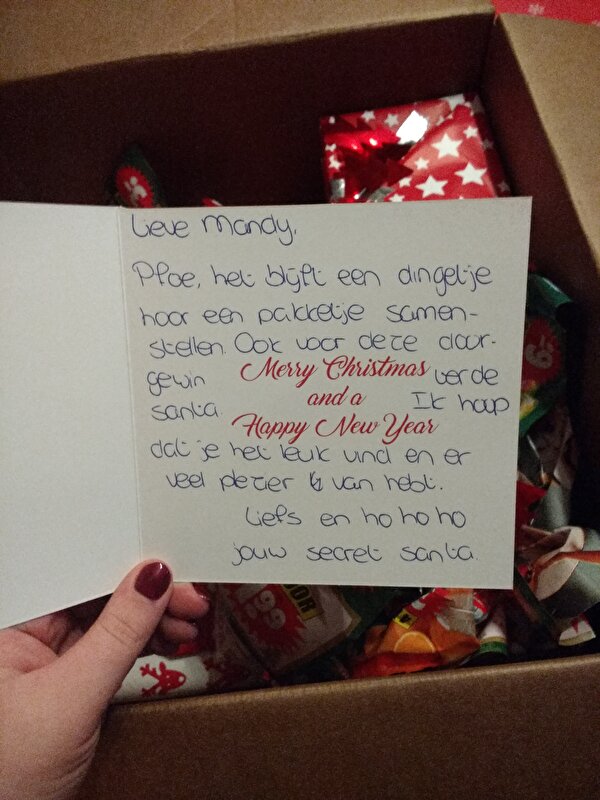 Lieve Mandy,
Pfoe, het blijft een dingetje
hoor een pakketje samen-
stellen. Ook voor deze door-
gewin Merry Christmas terde
and a
santa. Ik hoop
Happy New Year
dat je het leuk vind en er
veel plezier van hebt.
Liefs en ho ho ho
jouw secret santa.
99